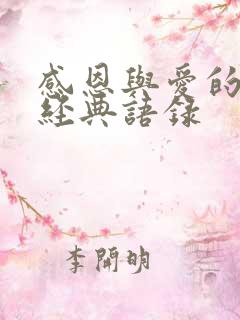 感恩與愛的
經典語錄
李開明